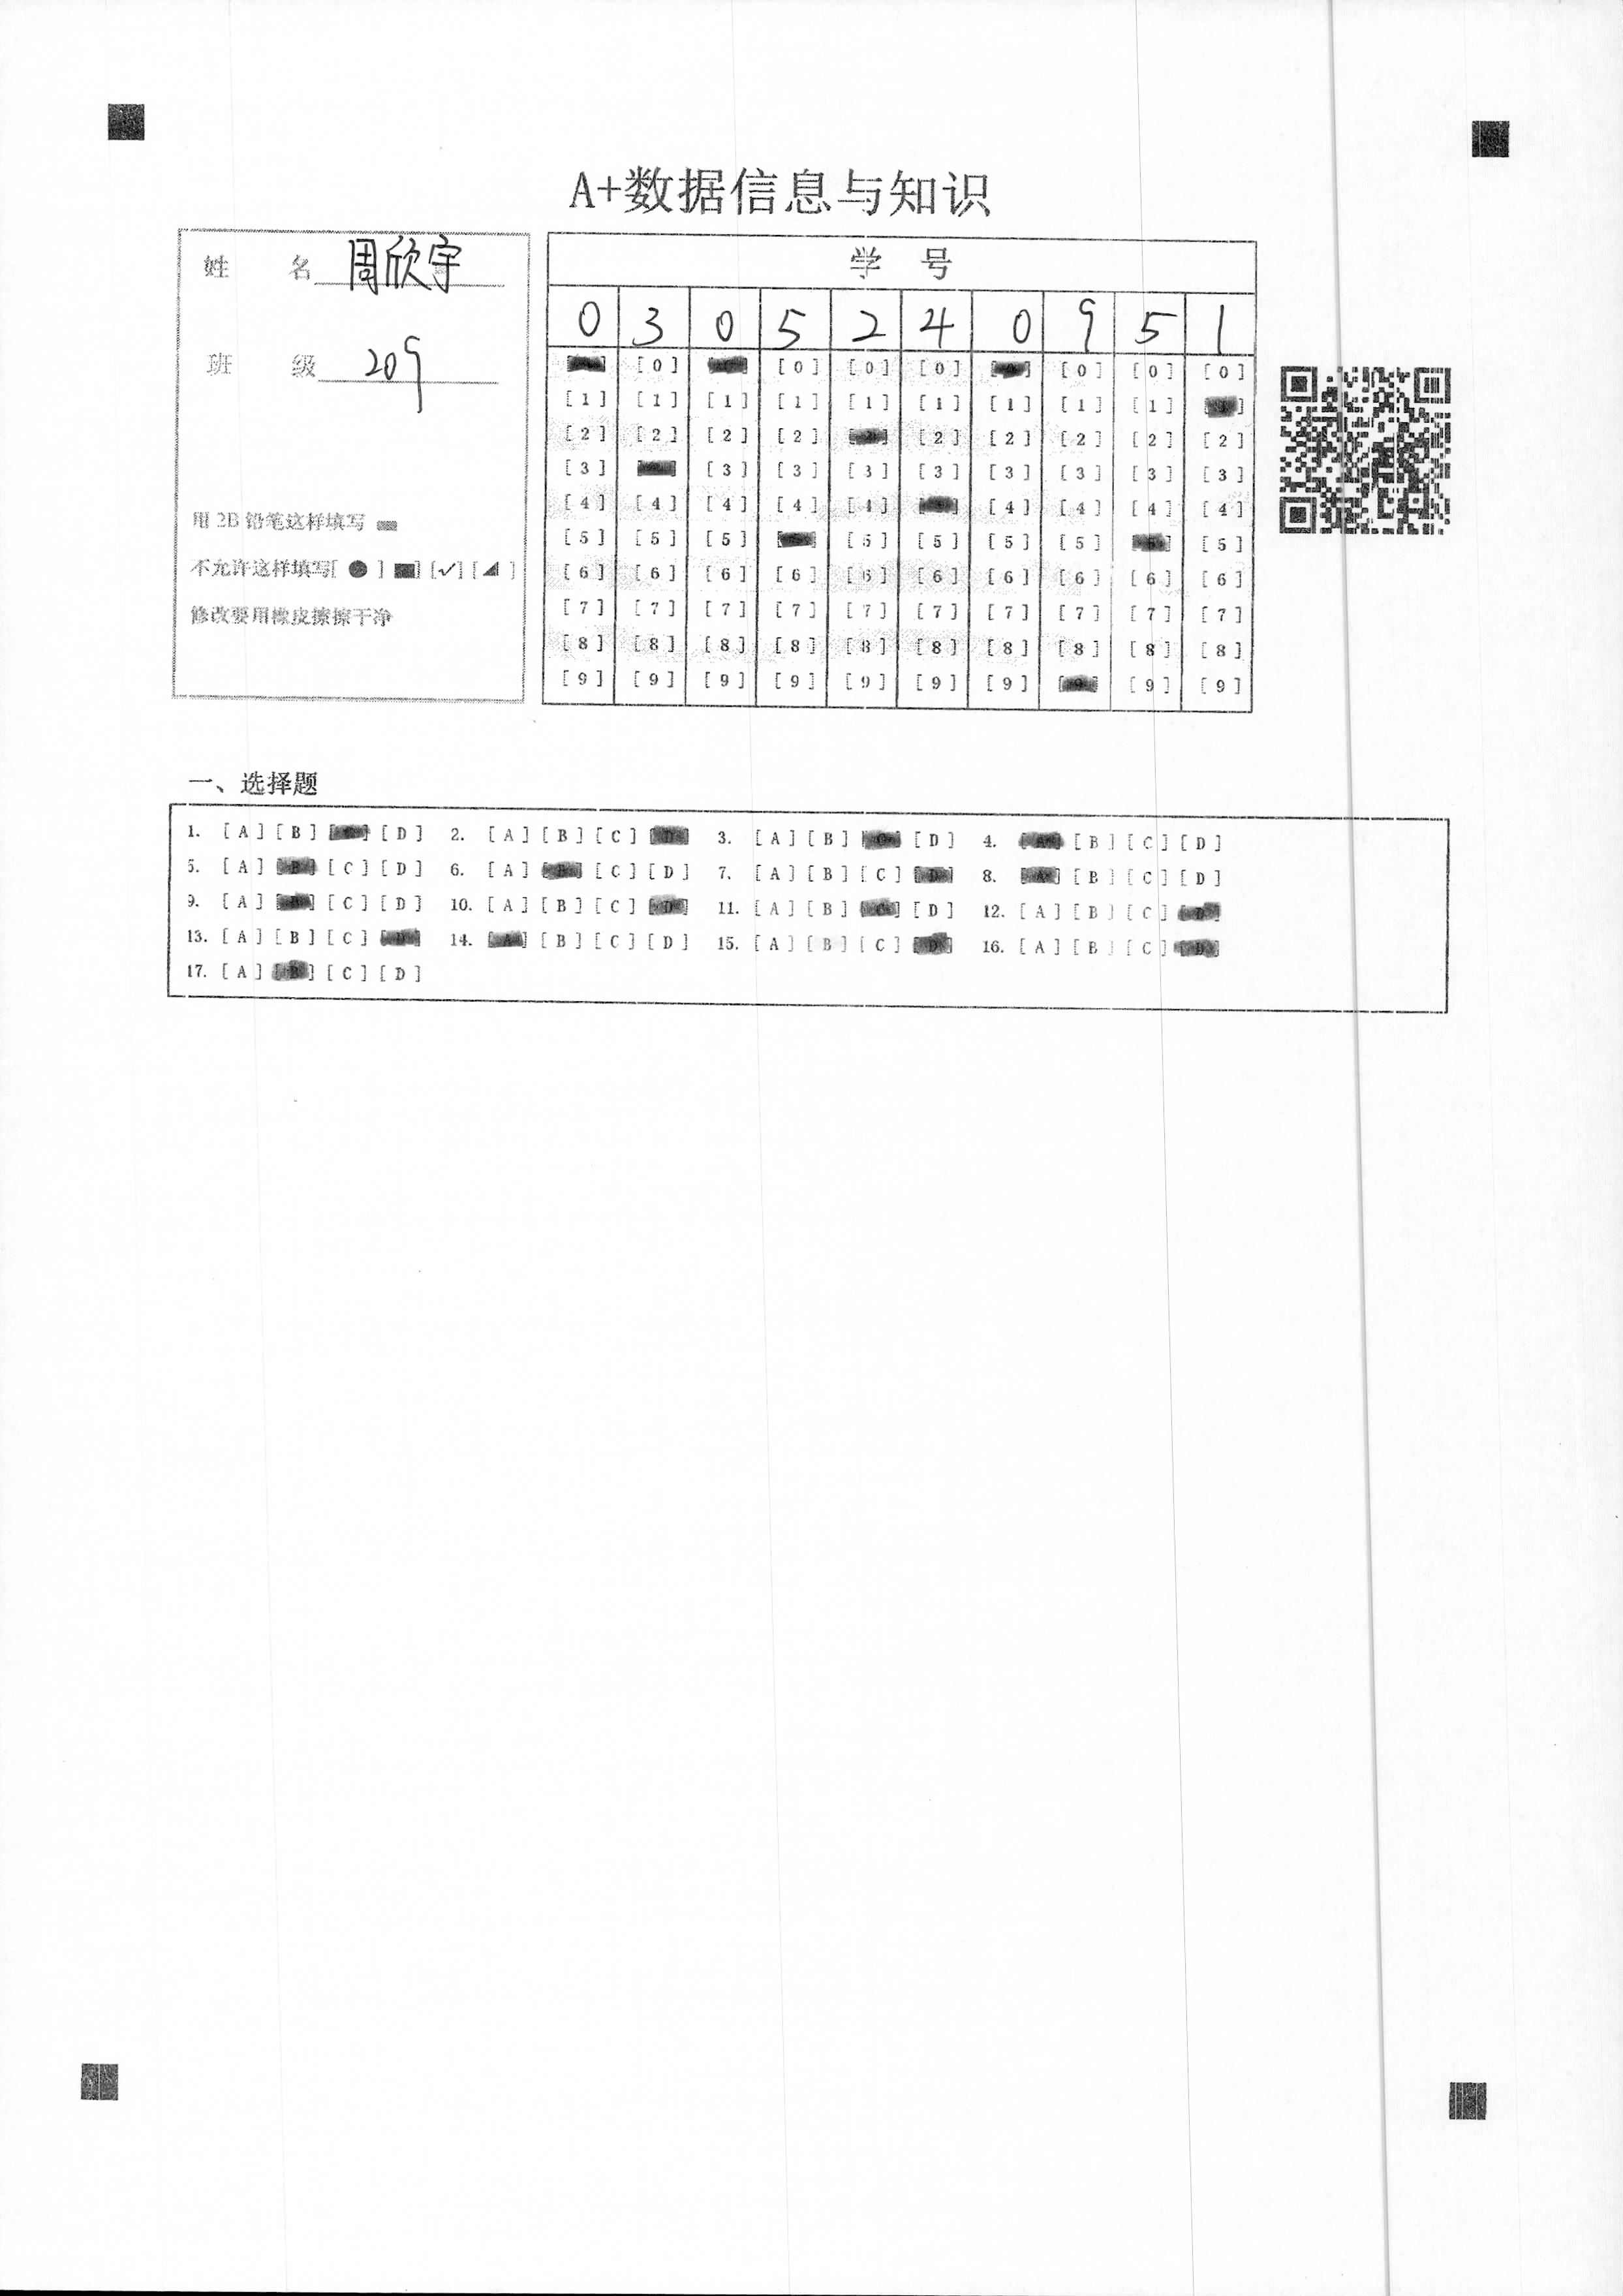 A+数据信息与知识
姓 名 周欣宇
班 级 209
用 2B 铅笔这样填写
不允许这样填写[ ● ] ■] [✓] [◢ ]
修改要用橡皮擦擦干净
学 号
0 3 0 5 2 4 0 9 5 1
[0] [0] [0] [0] [0] [0] [0]
[1] [1] [1] [1] [1] [1] [1] [1] [1]
[2] [2] [2] [2] [2] [2] [2] [2] [2]
[3] [3] [3] [3] [3] [3] [3] [3] [3]
[4] [4] [4] [4] [4] [4] [4] [4] [4]
[5] [5] [5] [5] [5] [5] [5] [5]
[6] [6] [6] [6] [6] [6] [6] [6] [6] [6]
[7] [7] [7] [7] [7] [7] [7] [7] [7] [7]
[8] [8] [8] [8] [8] [8] [8] [8] [8] [8]
[9] [9] [9] [9] [9] [9] [9] [9] [9]
一、选择题
1. [A] [B] [D] 2. [A] [B] [C] [D] 3. [A] [B] [C] [D] 4. [A] [B] [C] [D]
5. [A] [B] [C] [D] 6. [A] [B] [C] [D] 7. [A] [B] [C] [D] 8. [A] [B] [C] [D]
9. [A] [B] [C] [D] 10. [A] [B] [C] [D] 11. [A] [B] [C] [D] 12. [A] [B] [C] [D]
13. [A] [B] [C] [D] 14. [A] [B] [C] [D] 15. [A] [B] [C] [D] 16. [A] [B] [C] [D]
17. [A] [B] [C] [D]